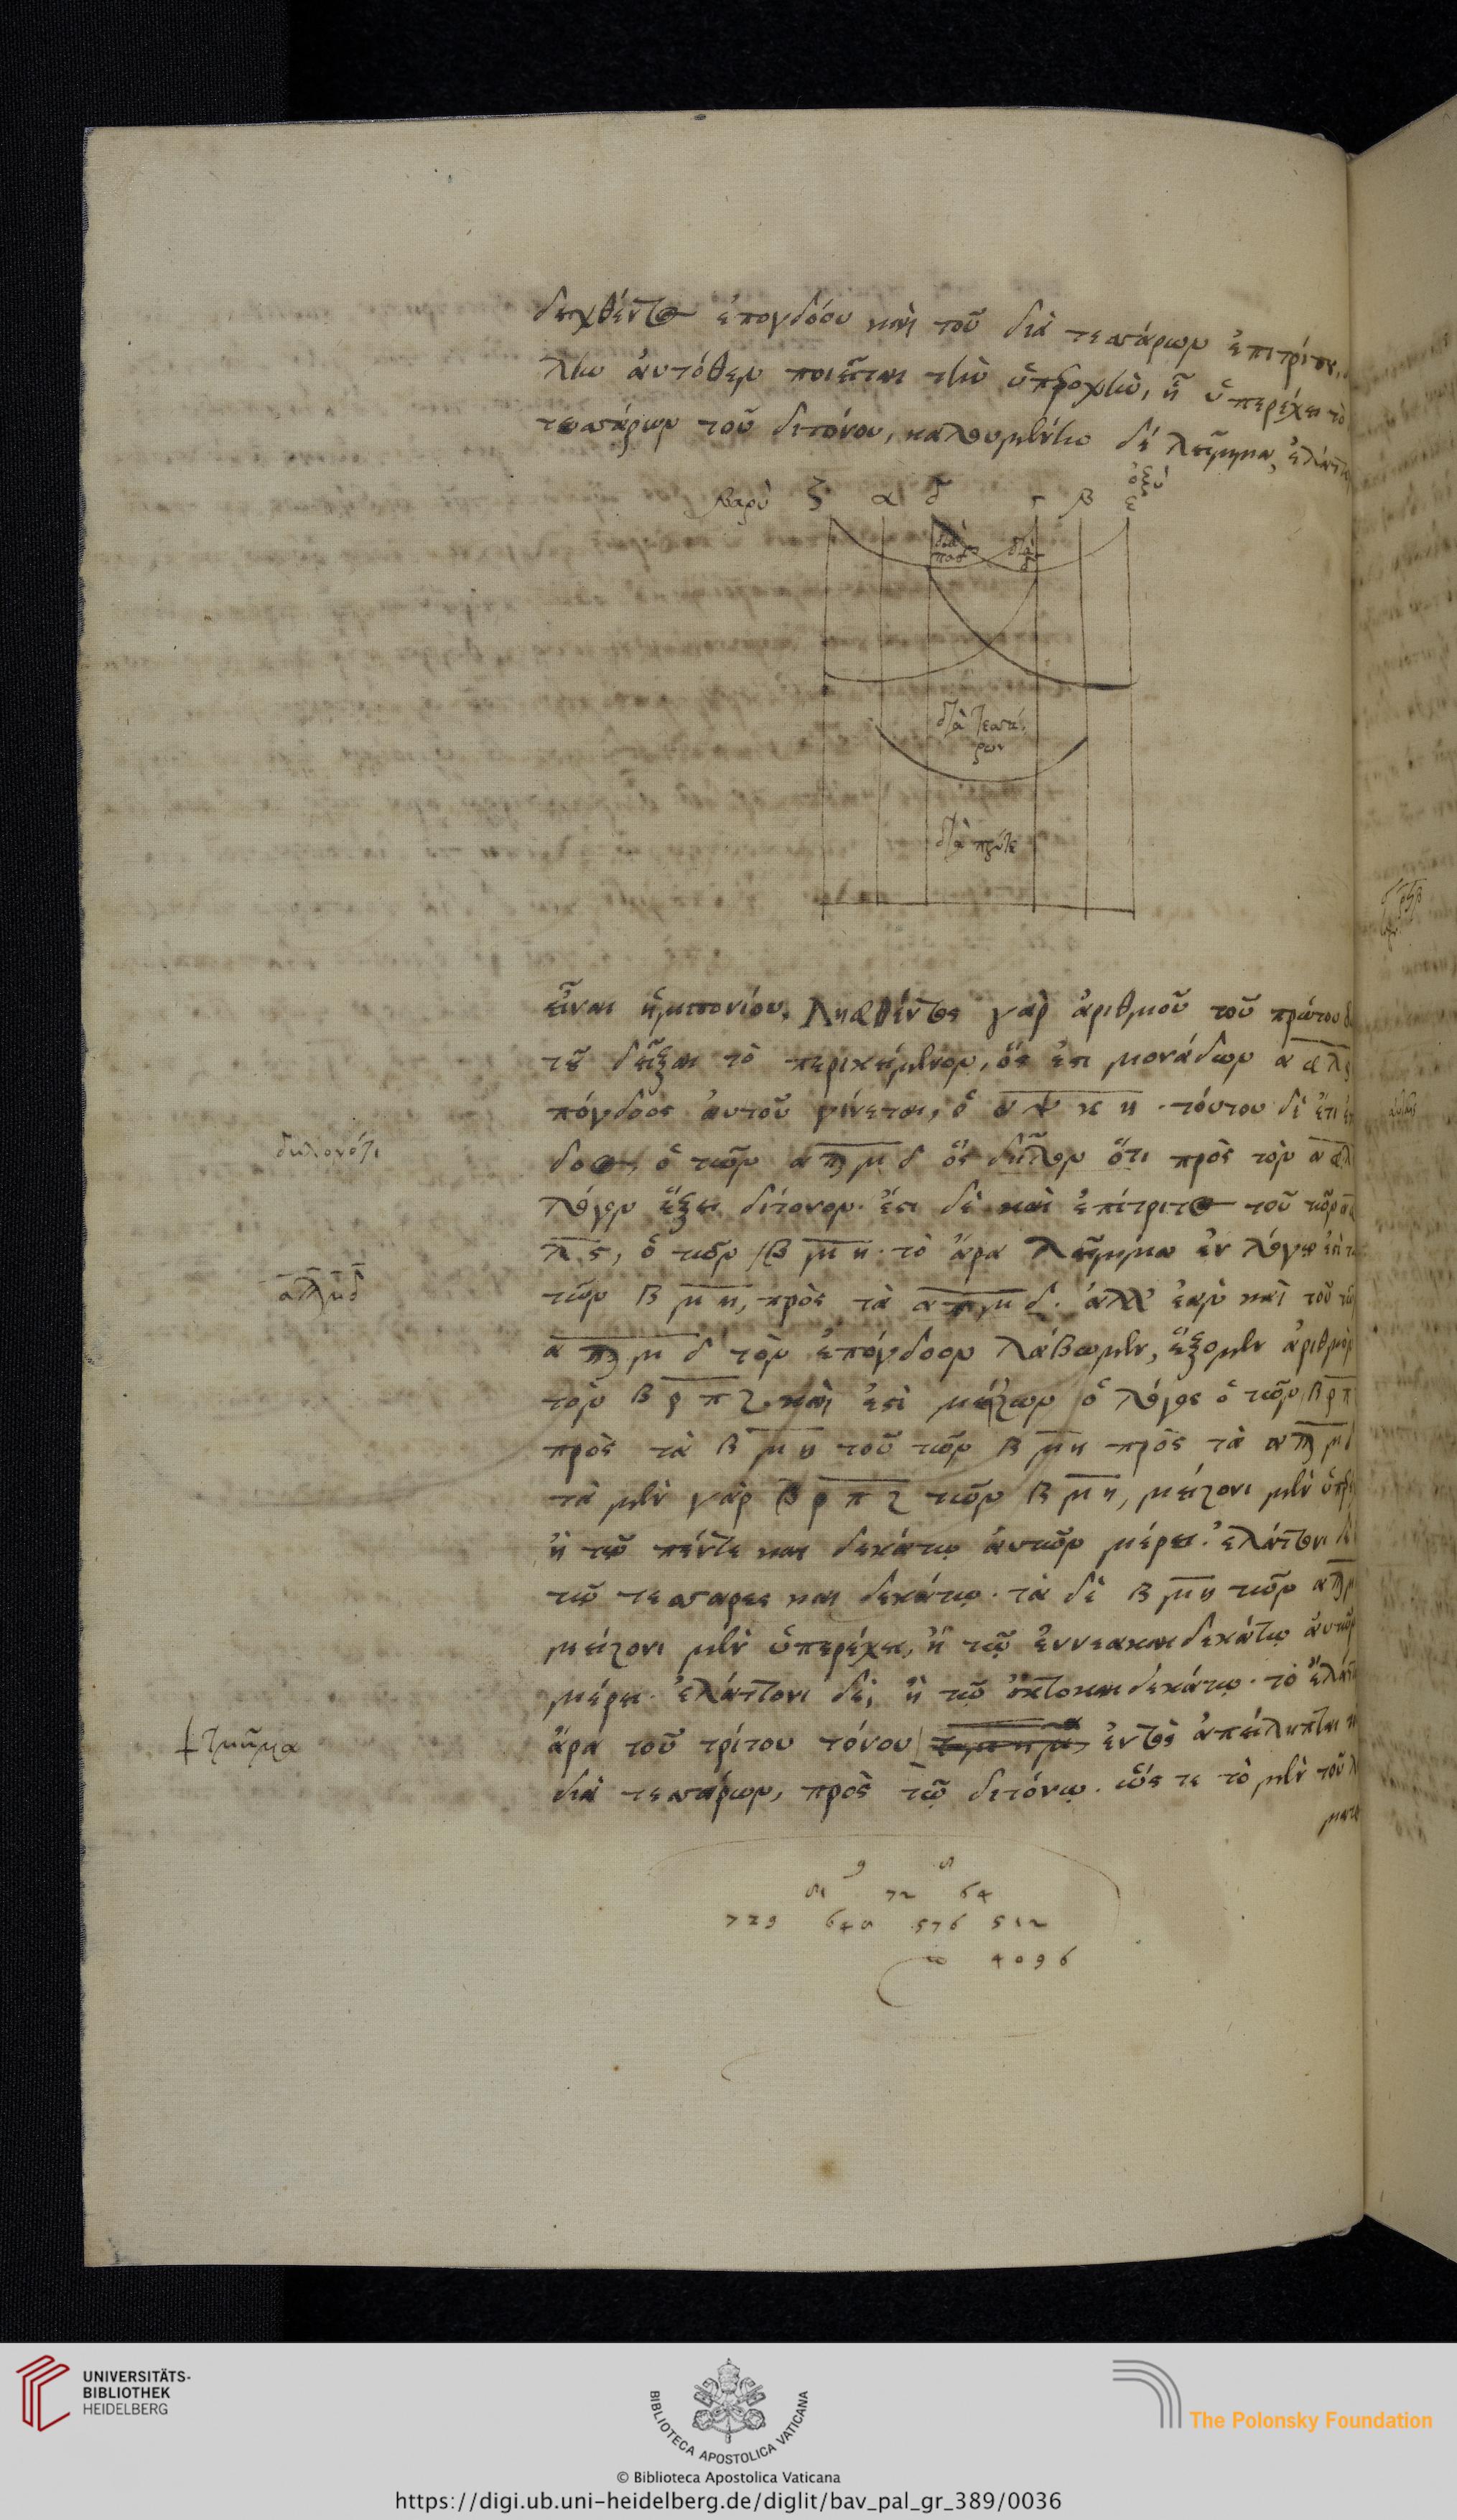 δειχθέντος ἐπογδόου καὶ τοῦ διὰ τεσσάρων ἐπιτρίτου,
λὴν αὐτόθεν ποιεῖται τὴν ὑπεροχὴν, ᾗ ὑπερέχει τὸ
τεσσάρων τοῦ διτόνου, καλουμένην δὲ λεῖμμα, ἐλάττω
ὀξύ
βαρὺ ζ α δ γ β ε
διὰ πασ διὰ δ
διὰ τεσσάρων
διὰ πέντε
εἶναι ἡμιτονίου. Ληφθέντος γὰρ ἀριθμοῦ τοῦ πρώτου
τοῦ δεῖξαι τὸ περικείμενον, ὅς ἐστι μονάδων αφλς
πόγδοος αὐτοῦ γίνεται, ὁ αψκη. τούτου δὲ ἔτι
δηλονότι
δοος, ὁ τῶν αϡμδ ὃς δῆλον ὅτι πρὸς τὸν αφλ
λόγον ἕξει δίτονον. ἔστι δὲ καὶ ἐπίτριτος τοῦ τῶν
λς, ὁ τῶν βμη. τὸ ἄρα λεῖμμα ἐν λόγῳ ἐστὶ
αϡμδ
τῶν βμη, πρὸς τὰ αϡμδ. ἀλλ' ἐὰν καὶ τοῦ τῶν
αϡμδ τὸν ἐπόγδοον λάβωμεν, ἕξομεν ἀριθμὸν
τὸν βρπζ. καὶ ἐστὶ μείζων ὁ λόγος ὁ τῶν βρπ
πρὸς τὰ βμη τοῦ τῶν βμη πρὸς τὰ αϡμδ
τὰ μὲν γὰρ βρπζ τῶν βμη, μείζονι μὲν ὑπερ
ἢ τῷ πέντε και δεκάτῳ αὐτῶν μέρει. ἐλάττονι δὲ
τῷ τεσσαρες και δεκάτῳ. τὰ δὲ βμη τῶν αϡμ
μείζονι μὲν ὑπερέχει, ἢ τῷ ἐννεακαιδεκάτῳ αὐτῶν
μέρει. ἐλάττονι δὲ, ἢ τῷ ὀκτοκαιδεκάτῳ. τὸ ἔλαττ
τμῆμα
ἄρα τοῦ τρίτου τόνου ἐντὸς ἀπείληπται
διὰ τεσσάρων, πρὸς τῷ διτόνῳ. ὥς τε τὸ μὲν τοῦ λ
ματος
9 8
81 72 64
729 648 576 512
4096
UNIVERSITÄTS-
BIBLIOTHEK
HEIDELBERG
BIBLIOTECA APOSTOLICA VATICANA
The Polonsky Foundation
© Biblioteca Apostolica Vaticana
https://digi.ub.uni-heidelberg.de/diglit/bav_pal_gr_389/0036